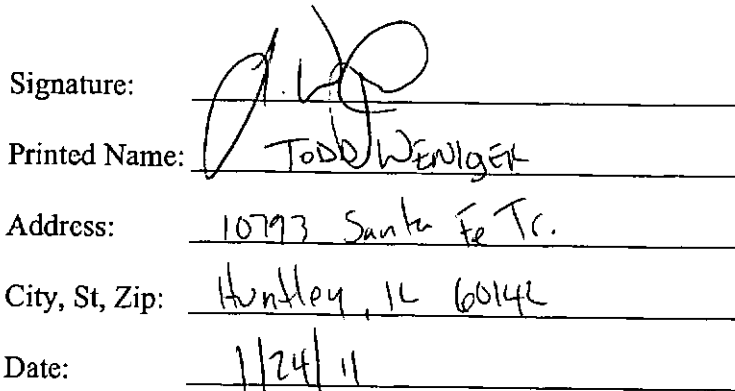 Signature:
Printed Name: TODD WENIGER
Address: 10793 Santa Fe Tr.
City, St, Zip: Huntley, IL 60142
Date: 1/24/11